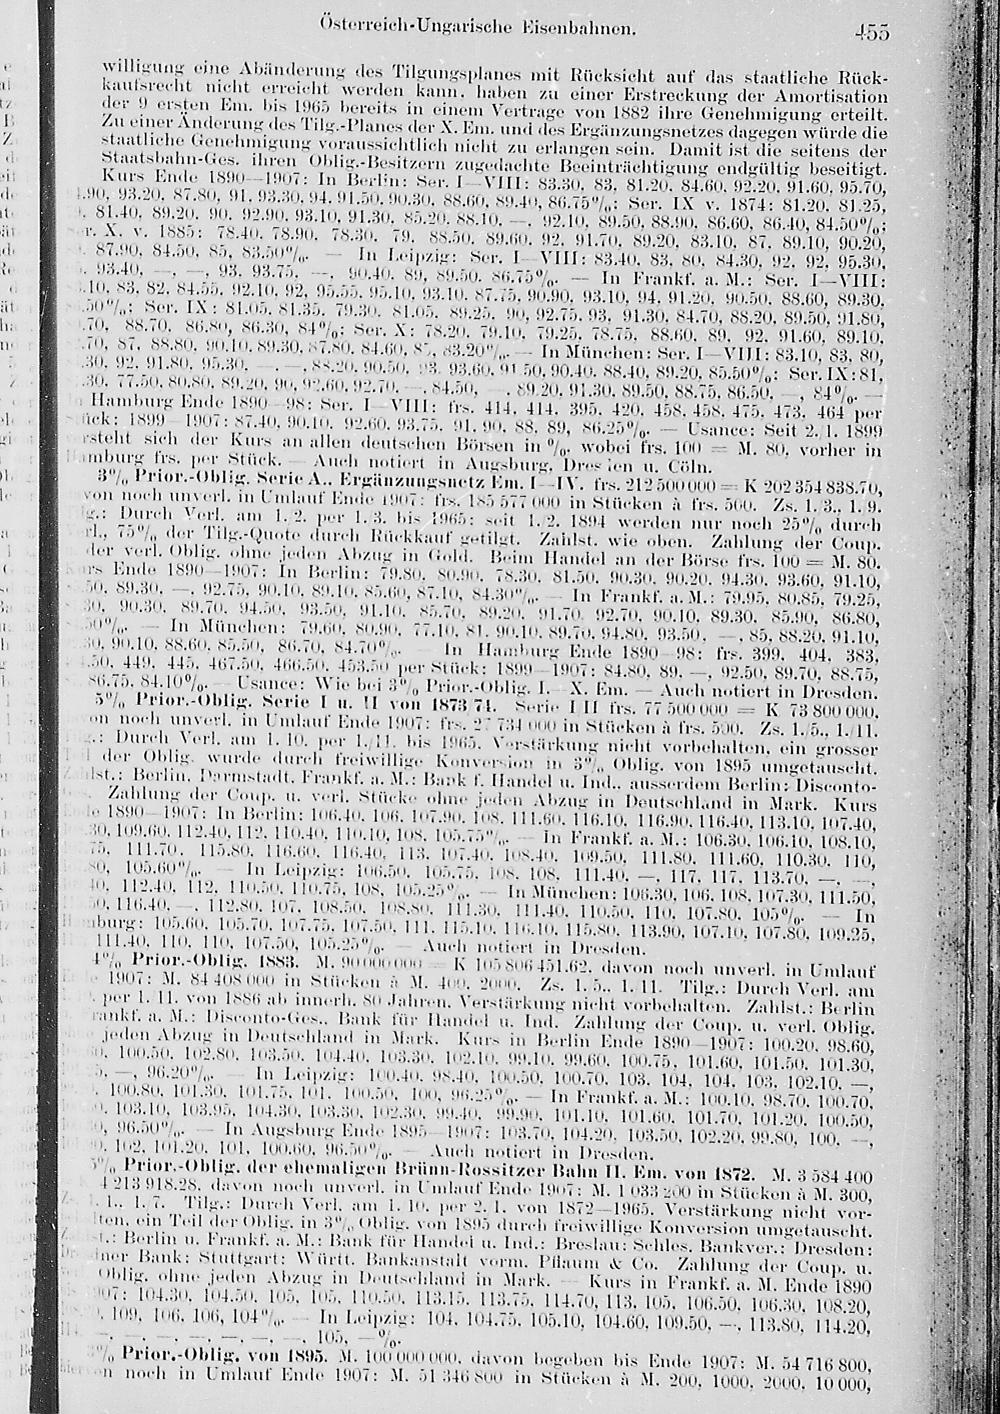 Österreich-Ungarische Eisenbahnen. 455
willigung eine Abänderung des Tilgungsplanes mit Rücksicht auf das staatliche Rück-
kaufsrecht nicht erreicht werden kann, haben zu einer Erstreckung der Amortisation
der 9 ersten Em. bis 1965 bereits in einem Vertrage von 1882 ihre Genehmigung erteilt.
Zu einer Änderung des Tilg.-Planes der X. Em. und des Ergänzungsnetzes dagegen würde die
staatliche Genehmigung voraussichtlich nicht zu erlangen sein. Damit ist die seitens der
Staatsbahn-Ges. ihren Oblig.-Besitzern zugedachte Beeinträchtigung endgültig beseitigt.
Kurs Ende 1890—1907: In Berlin: Ser. I—VIII: 83.30, 83, 81.20, 84.60, 92.20, 91.60, 95.70,
93.20, 87.80, 91, 93.30, 94, 91.50, 90.30, 88.60, 89.40, 86.75%; Ser. IX v. 1874: 81.20, 81.25,
81.40, 89.20, 90, 92.90, 93.10, 91.30, 85.20, 88.10, —, 92.10, 89.50, 88.90, 86.60, 86.40, 84.50%;
X. v. 1885: 78.40, 78.90, 78.30, 79, 88.50, 89.60, 92, 91.70, 89.20, 83.10, 87, 89.10, 90.20,
87.90, 84.50, 85, 83.50%. — In Leipzig: Ser. I—VIII: 83.40, 83, 80, 84.30, 92, 92, 95.30,
93.40, —, —, 93, 93.75, —, 90.40, 89, 89.50, 86.75%. — In Frankf. a. M.: Ser. I—VIII:
83, 82, 84.55, 92.10, 92, 95.55, 95.10, 93.10, 87.75, 90.90, 93.10, 94, 91.20, 90.50, 88.60, 89.30,
Ser. IX: 81.05, 81.35, 79.30, 81.05, 89.25, 90, 92.75, 93, 91.30, 84.70, 88.20, 89.50, 91.80,
88.70, 86.80, 86.30, 84%; Ser. X: 78.20, 79.10, 79.25, 78.75, 88.60, 89, 92, 91.60, 89.10,
87, 88.80, 90.10, 89.30, 87.80, 84.60, 83.20%. — In München: Ser. I—VIII: 83.10, 83, 80,
92, 91.80, 95.30, —, —, 88.20, 90.50, 93, 93.60, 91.50, 90.40, 88.40, 89.20, 85.50%; Ser. IX: 81,
77.50, 80.80, 89.20, 90, 92.60, 92.70, —, 84.50, —, 89.20, 91.30, 89.50, 88.75, 86.50, —, 84%. —
Hamburg Ende 1890—98: Ser. I—VIII: frs. 414, 414, 395, 420, 458, 458, 475, 473, 464 per
1899—1907: 87.40, 90.10, 92.60, 93.75, 91, 90, 88, 89, 86.25%. — Usance: Seit 2./1. 1899
versteht sich der Kurs an allen deutschen Börsen in %, wobei frs. 100 = M. 80, vorher in
Hamburg frs. per Stück. — Auch notiert in Augsburg, Dresden u. Cöln.
3% Prior.-Oblig. Serie A., Ergänzungsnetz Em. I—IV. frs. 212 500 000 = K 202 354 838.70,
von noch unverl. in Umlauf Ende 1907: frs. 185 577 000 in Stücken à frs. 500. Zs. 1./3., 1./9.
Durch Verl. am 1./2. per 1./3. bis 1965; seit 1./2. 1894 werden nur noch 25% durch
75% der Tilg.-Quote durch Rückkauf getilgt. Zahlst. wie oben. Zahlung der Coup.
der verl. Oblig. ohne jeden Abzug in Gold. Beim Handel an der Börse frs. 100 = M. 80.
Kurs Ende 1890—1907: In Berlin: 79.80, 80.90, 78.30, 81.50, 90.30, 90.20, 94.30, 93.60, 91.10,
89.30, —, 92.75, 90.10, 89.10, 85.60, 87.10, 84.30%. — In Frankf. a. M.: 79.95, 80.85, 79.25,
90.30, 89.70, 94.50, 93.50, 91.10, 85.70, 89.20, 91.70, 92.70, 90.10, 89.30, 85.90, 86.80,
— In München: 79.60, 80.90, 77.10, 81, 90.10, 89.70, 94.80, 93.50, —, 85, 88.20, 91.10,
90.10, 88.60, 85.50, 86.70, 84.70%. — In Hamburg Ende 1890—98: frs. 399, 404, 383,
449, 445, 467.50, 466.50, 453.50 per Stück; 1899—1907: 84.80, 89, —, 92.50, 89.70, 88.75,
86.75, 84.10%. — Usance: Wie bei 3% Prior.-Oblig. I.—X. Em. — Auch notiert in Dresden.
5% Prior.-Oblig. Serie I u. II von 1873/74. Serie I/II frs. 77 500 000 = K 73 800 000,
von noch unverl. in Umlauf Ende 1907: frs. 27 734 000 in Stücken à frs. 500. Zs. 1./5., 1./11.
Durch Verl. am 1./10. per 1./11. bis 1965. Verstärkung nicht vorbehalten, ein grosser
der Oblig. wurde durch freiwillige Konversion in 3% Oblig. von 1895 umgetauscht.
Zahlst.: Berlin, Darmstadt, Frankf. a. M.: Bank f. Handel u. Ind., ausserdem Berlin: Disconto-
Zahlung der Coup. u. verl. Stücke ohne jeden Abzug in Deutschland in Mark. Kurs
1890—1907: In Berlin: 106.40, 106, 107.90, 108, 111.60, 116.10, 116.90, 116.40, 113.10, 107.40,
109.60, 112.40, 112, 110.40, 110.10, 108, 105.75%. — In Frankf. a. M.: 106.30, 106.10, 108.10,
111.70, 115.80, 116.60, 116.40, 113, 107.40, 108.40, 109.50, 111.80, 111.60, 110.30, 110,
105.60%. — In Leipzig: 106.50, 105.75, 108, 108, 111.40, —, 117, 117, 113.70, —, —,
112.40, 112, 110.50, 110.75, 108, 105.25%. — In München: 106.30, 106, 108, 107.30, 111.50,
116.40, —, 112.80, 107, 108.50, 108.80, 111.30, 111.40, 110.50, 110, 107.80, 105%. — In
Hamburg: 105.60, 105.70, 107.75, 107.50, 111, 115.10, 116.10, 115.80, 113.90, 107.10, 107.80, 109.25,
111.40, 110, 110, 107.50, 105.25%. — Auch notiert in Dresden.
4% Prior.-Oblig. 1883. M. 90 000 000 = K 105 806 451.62, davon noch unverl. in Umlauf
1907: M. 84 408 000 in Stücken à M. 400, 2000. Zs. 1./5., 1./11. Tilg.: Durch Verl. am
per 1./11. von 1886 ab innerh. 80 Jahren, Verstärkung nicht vorbehalten. Zahlst.: Berlin
Frankf. a. M.: Disconto-Ges., Bank für Handel u. Ind. Zahlung der Coup. u. verl. Oblig.
jeden Abzug in Deutschland in Mark. Kurs in Berlin Ende 1890—1907: 100.20, 98.60,
100.50, 102.80, 103.50, 104.40, 103.30, 102.10, 99.10, 99.60, 100.75, 101.60, 101.50, 101.30,
—, 96.20%. — In Leipzig: 100.40, 98.40, 100.50, 100.70, 103, 104, 104, 103, 102.10, —,
100.80, 101.30, 101.75, 101, 100.50, 100, 96.25%. — In Frankf. a. M.: 100.10, 98.70, 100.70,
103.10, 103.95, 104.30, 103.30, 102.30, 99.40, 99.90, 101.10, 101.60, 101.70, 101.20, 100.50,
96.50%. — In Augsburg Ende 1895—1907: 103.70, 104.20, 103.50, 102.20, 99.80, 100, —,
102, 101.20, 101, 100.60, 96.50%. — Auch notiert in Dresden.
5% Prior.-Oblig. der ehemaligen Brünn-Rossitzer Bahn II. Em. von 1872. M. 3 584 400
4 213 918.28, davon noch unverl. in Umlauf Ende 1907: M. 1 033 200 in Stücken à M. 300,
1./7. Tilg.: Durch Verl. am 1./10. per 2./1. von 1872—1965. Verstärkung nicht vor-
ein Teil der Oblig. in 3% Oblig. von 1895 durch freiwillige Konversion umgetauscht.
Berlin u. Frankf. a. M.: Bank für Handel u. Ind.; Breslau: Schles. Bankver.; Dresden:
Dresdner Bank; Stuttgart: Württ. Bankanstalt vorm. Pflaum & Co. Zahlung der Coup. u.
Oblig. ohne jeden Abzug in Deutschland in Mark. — Kurs in Frankf. a. M. Ende 1890
104.30, 104.50, 105, 105, 110.50, 113.15, 113.75, 114.70, 113, 105, 106.50, 106.30, 108.20,
109, 106, 106, 104%. — In Leipzig: 104, 104.75, 105.10, 104.60, 109.50, —, 113.80, 114.20,
—, —, —, —, —, —, —, 105, —%.
3% Prior.-Oblig. von 1895. M. 100 000 000, davon begeben bis Ende 1907: M. 54 716 800,
noch in Umlauf Ende 1907: M. 51 346 800 in Stücken à M. 200, 1000, 2000, 10 000,